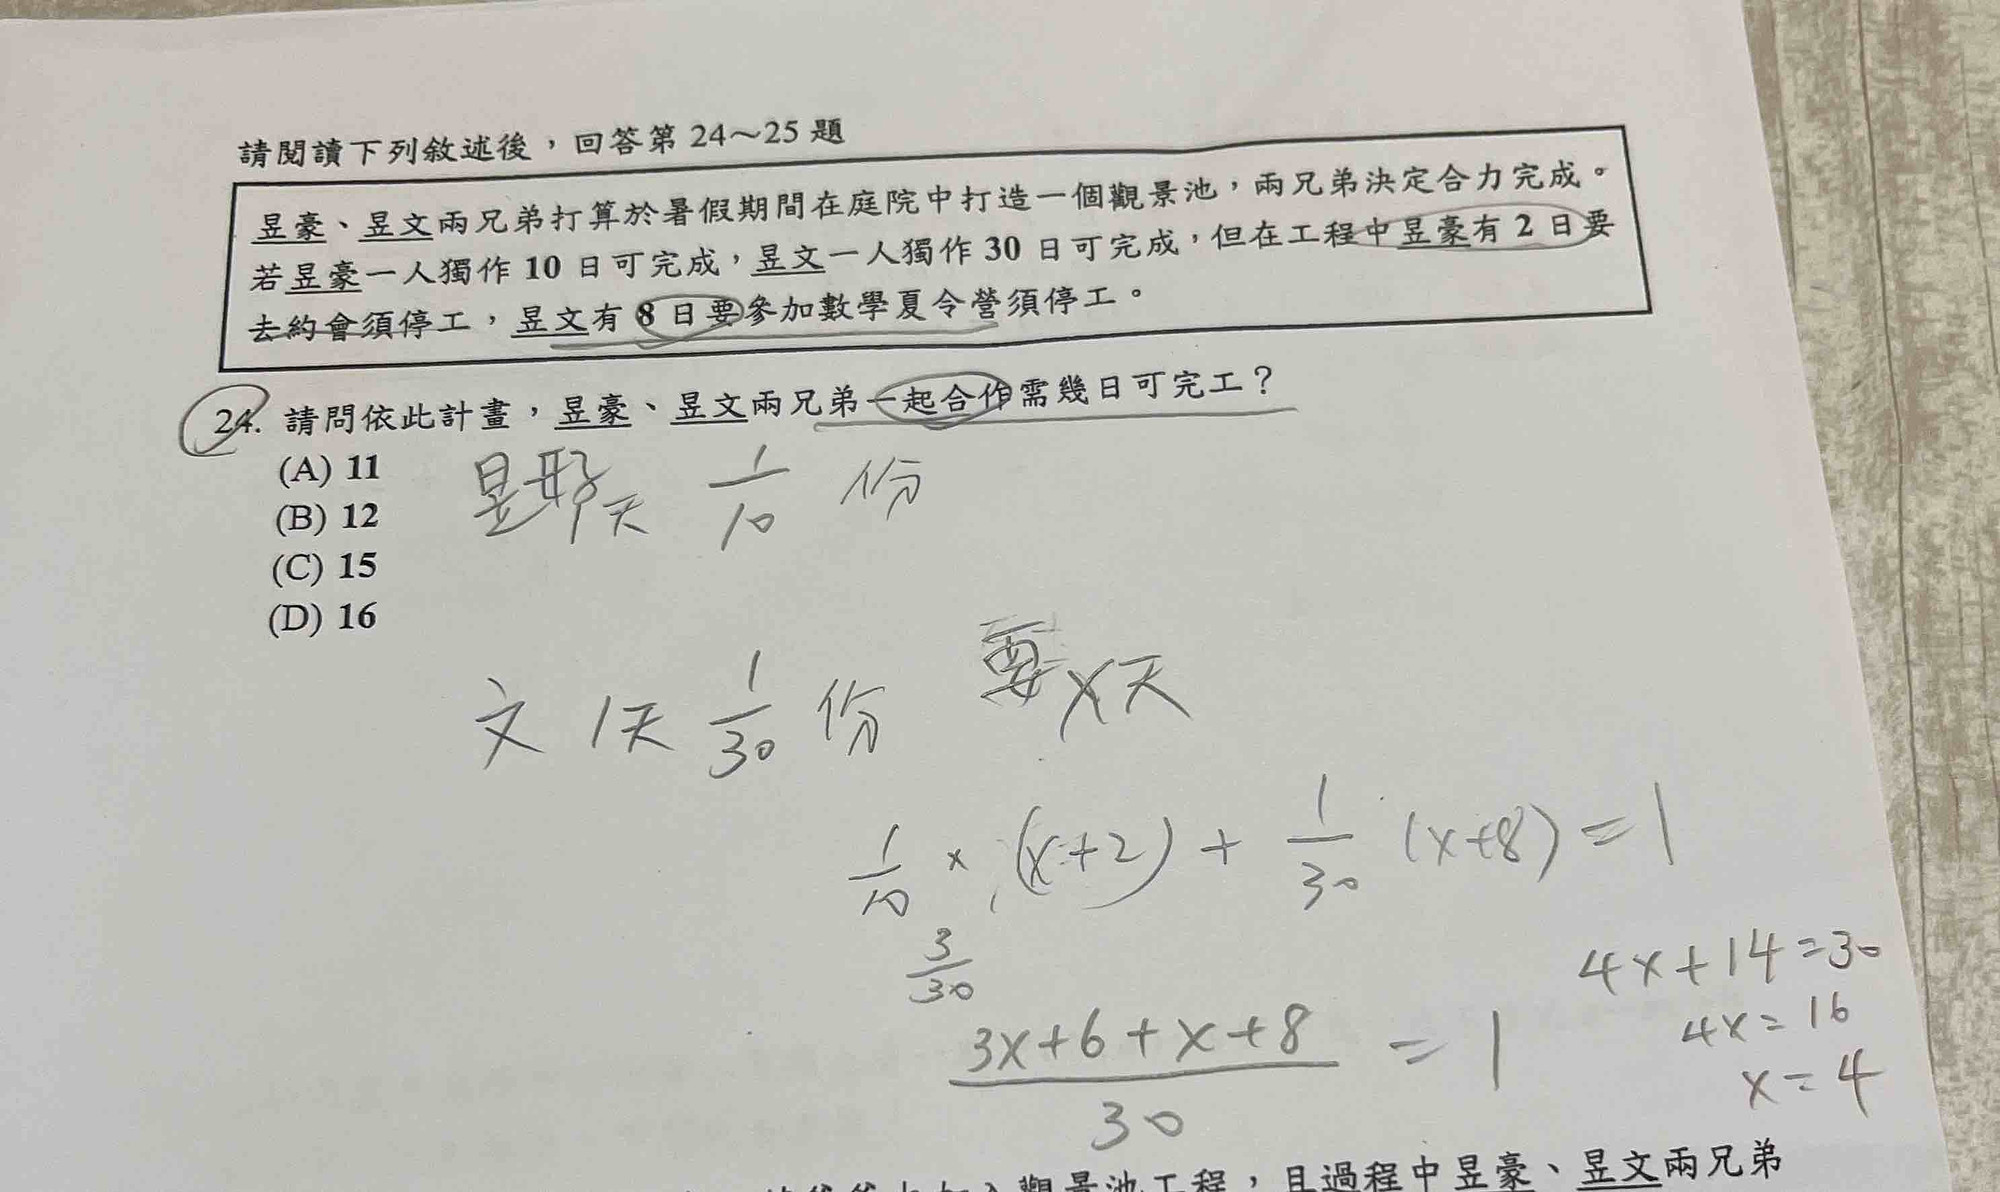 請閱讀下列敘述後，回答第 24～25 題
昱豪、昱文兩兄弟打算於暑假期間在庭院中打造一個觀景池，兩兄弟決定合力完成。
若昱豪一人獨作 10 日可完成，昱文一人獨作 30 日可完成，但在工程中昱豪有 2 日要
去約會須停工，昱文有 8 日要參加數學夏令營須停工。
24. 請問依此計畫，昱豪、昱文兩兄弟一起合作需幾日可完工？
(A) 11
(B) 12
(C) 15
(D) 16
天 1/10 份
文 1天 1/30 份 要x天
1/10 × (x+2) + 1/30 (x+8) = 1
3/30
(3x+6+x+8)/30 = 1
4x+14=30
4x=16
x=4
觀景池工程，且過程中昱豪、昱文兩兄弟